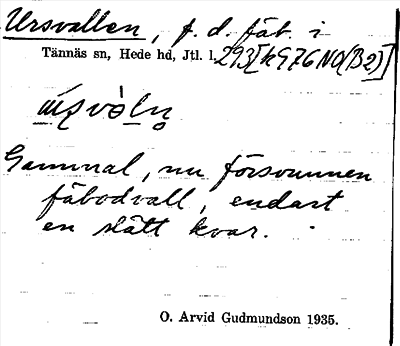 Ursvallen, f. d. fäb. i
Tännäs sn, Hede hd, Jtl. l. 293 [kg 76 NO (B2)]
Gammal, nu försvunnen
fäbodvall, endast
en slått kvar.
O. Arvid Gudmundson 1935.